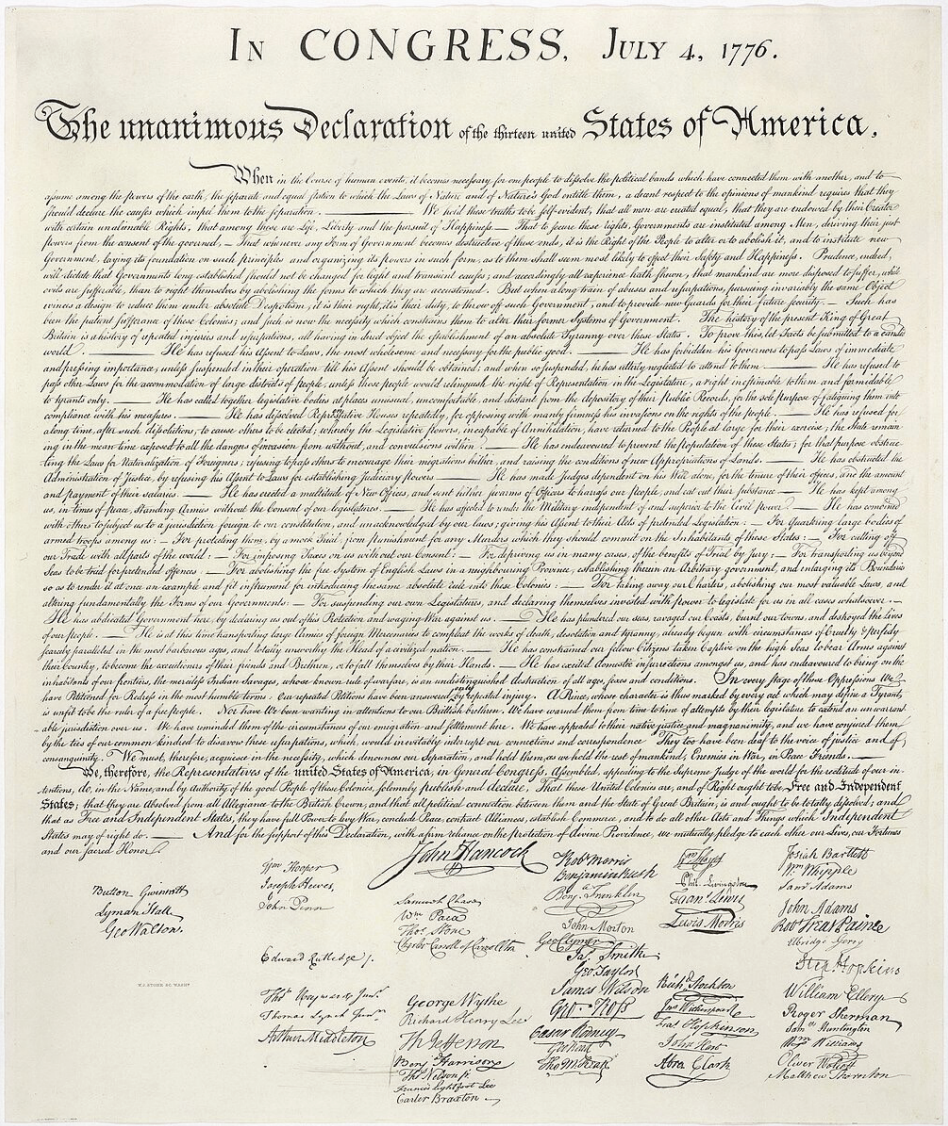 In CONGRESS, July 4, 1776.
The unanimous Declaration of the thirteen united States of America,
When in the Course of human events, it becomes necessary for one people to dissolve the political bands which have connected them with another, and to
assume among the powers of the earth, the separate and equal station to which the Laws of Nature and of Nature's God entitle them, a decent respect to the opinions of mankind requires that they
should declare the causes which impel them to the separation. — We hold these truths to be self-evident, that all men are created equal, that they are endowed by their Creator
with certain unalienable Rights, that among these are Life, Liberty and the pursuit of Happiness — That to secure these rights, Governments are instituted among Men, deriving their just
powers from the consent of the governed, — That whenever any Form of Government becomes destructive of these ends, it is the Right of the People to alter or to abolish it, and to institute new
Government, laying its foundation on such principles and organizing its powers in such form, as to them shall seem most likely to effect their Safety and Happiness. Prudence, indeed,
will dictate that Governments long established should not be changed for light and transient causes; and accordingly all experience hath shewn, that mankind are more disposed to suffer, while
evils are sufferable, than to right themselves by abolishing the forms to which they are accustomed. But when a long train of abuses and usurpations, pursuing invariably the same Object
evinces a design to reduce them under absolute Despotism, it is their right, it is their duty, to throw off such Government, and to provide new Guards for their future security. — Such has
been the patient sufferance of these Colonies; and such is now the necessity which constrains them to alter their former Systems of Government. The history of the present King of Great
Britain is a history of repeated injuries and usurpations, all having in direct object the establishment of an absolute Tyranny over these States. To prove this, let Facts be submitted to a candid
world. — He has refused his Assent to Laws, the most wholesome and necessary for the public good. — He has forbidden his Governors to pass Laws of immediate
and pressing importance, unless suspended in their operation till his Assent should be obtained; and when so suspended, he has utterly neglected to attend to them. — He has refused to
pass other Laws for the accommodation of large districts of people, unless those people would relinquish the right of Representation in the Legislature, a right inestimable to them and formidable
to tyrants only. — He has called together legislative bodies at places unusual, uncomfortable, and distant from the depository of their public Records, for the sole purpose of fatiguing them into
compliance with his measures. — He has dissolved Representative Houses repeatedly, for opposing with manly firmness his invasions on the rights of the people. — He has refused for
a long time, after such dissolutions, to cause others to be elected; whereby the Legislative powers, incapable of Annihilation, have returned to the People at large for their exercise; the State remain-
ing in the mean time exposed to all the dangers of invasion from without, and convulsions within. — He has endeavoured to prevent the population of these States; for that purpose obstruc-
ting the Laws for Naturalization of Foreigners; refusing to pass others to encourage their migrations hither, and raising the conditions of new Appropriations of Lands. — He has obstructed the
Administration of Justice, by refusing his Assent to Laws for establishing Judiciary powers. — He has made Judges dependent on his Will alone, for the tenure of their offices, and the amount
and payment of their salaries. — He has erected a multitude of New Offices, and sent hither swarms of Officers to harrass our people, and eat out their substance. — He has kept among
us, in times of peace, Standing Armies without the Consent of our legislatures. — He has affected to render the Military independent of and superior to the Civil power. — He has combined
with others to subject us to a jurisdiction foreign to our constitution, and unacknowledged by our laws; giving his Assent to their Acts of pretended Legislation: — For Quartering large bodies of
armed troops among us: — For protecting them, by a mock Trial, from punishment for any Murders which they should commit on the Inhabitants of these States: — For cutting off
our Trade with all parts of the world: — For imposing Taxes on us without our Consent: — For depriving us in many cases, of the benefits of Trial by jury: — For transporting us beyond
Seas to be tried for pretended offences: — For abolishing the free System of English Laws in a neighbouring Province, establishing therein an Arbitrary government, and enlarging its Boundaries
so as to render it at once an example and fit instrument for introducing the same absolute rule into these Colonies: — For taking away our Charters, abolishing our most valuable Laws, and
altering fundamentally the Forms of our Governments: — For suspending our own Legislatures, and declaring themselves invested with power to legislate for us in all cases whatsoever. —
He has abdicated Government here, by declaring us out of his Protection and waging War against us. — He has plundered our seas, ravaged our Coasts, burnt our towns, and destroyed the lives
of our people. — He is at this time transporting large Armies of foreign Mercenaries to compleat the works of death, desolation and tyranny, already begun with circumstances of Cruelty & perfidy
scarcely paralleled in the most barbarous ages, and totally unworthy the Head of a civilized nation. — He has constrained our fellow Citizens taken Captive on the high Seas to bear Arms against
their Country, to become the executioners of their friends and Brethren, or to fall themselves by their Hands. — He has excited domestic insurrections amongst us, and has endeavoured to bring on the
inhabitants of our frontiers, the merciless Indian Savages, whose known rule of warfare, is an undistinguished destruction of all ages, sexes and conditions. In every stage of these Oppressions We
have Petitioned for Redress in the most humble terms: Our repeated Petitions have been answered only by repeated injury. A Prince, whose character is thus marked by every act which may define a Tyrant,
is unfit to be the ruler of a free people. Nor have We been wanting in attentions to our Brittish brethren. We have warned them from time to time of attempts by their legislature to extend an unwarrant-
able jurisdiction over us. We have reminded them of the circumstances of our emigration and settlement here. We have appealed to their native justice and magnanimity, and we have conjured them
by the ties of our common kindred to disavow these usurpations, which, would inevitably interrupt our connections and correspondence. They too have been deaf to the voice of justice and of
consanguinity. We must, therefore, acquiesce in the necessity, which denounces our Separation, and hold them, as we hold the rest of mankind, Enemies in War, in Peace Friends. —
We, therefore, the Representatives of the united States of America, in General Congress, Assembled, appealing to the Supreme Judge of the world for the rectitude of our in-
tentions, do, in the Name, and by Authority of the good People of these Colonies, solemnly publish and declare, That these United Colonies are, and of Right ought to be Free and Independent
States; that they are Absolved from all Allegiance to the British Crown, and that all political connection between them and the State of Great Britain, is and ought to be totally dissolved; and
that as Free and Independent States, they have full Power to levy War, conclude Peace, contract Alliances, establish Commerce, and to do all other Acts and Things which Independent
States may of right do. — And for the support of this Declaration, with a firm reliance on the protection of divine Providence, we mutually pledge to each other our Lives, our Fortunes
and our sacred Honor.
Button Gwinnett
Lyman Hall
Geo Walton.
Wm Hooper
Joseph Hewes,
John Penn
Edward Rutledge /.
Thos Heyward Junr.
Thomas Lynch Junr.
Arthur Middleton
John Hancock
Samuel Chase
Wm Paca
Thos Stone
Charles Carroll of Carrollton
George Wythe
Richard Henry Lee
Th Jefferson
Benj Harrison
Thos Nelson jr.
Francis Lightfoot Lee
Carter Braxton
Robt Morris
Benjamin Rush
Benj. Franklin
John Morton
Geo Clymer
Jas. Smith
Geo. Taylor
James Wilson
Geo. Ross
Caesar Rodney
Geo Read
Tho M:Kean
Wm Floyd
Phil. Livingston
Frans. Lewis
Lewis Morris
Richd. Stockton
Jno Witherspoon
Fras. Hopkinson
John Hart
Abra Clark
Josiah Bartlett
Wm Whipple
Saml Adams
John Adams
Robt Treat Paine
Elbridge Gerry
Step. Hopkins
William Ellery
Roger Sherman
Saml Huntington
Wm Williams
Oliver Wolcott
Matthew Thornton